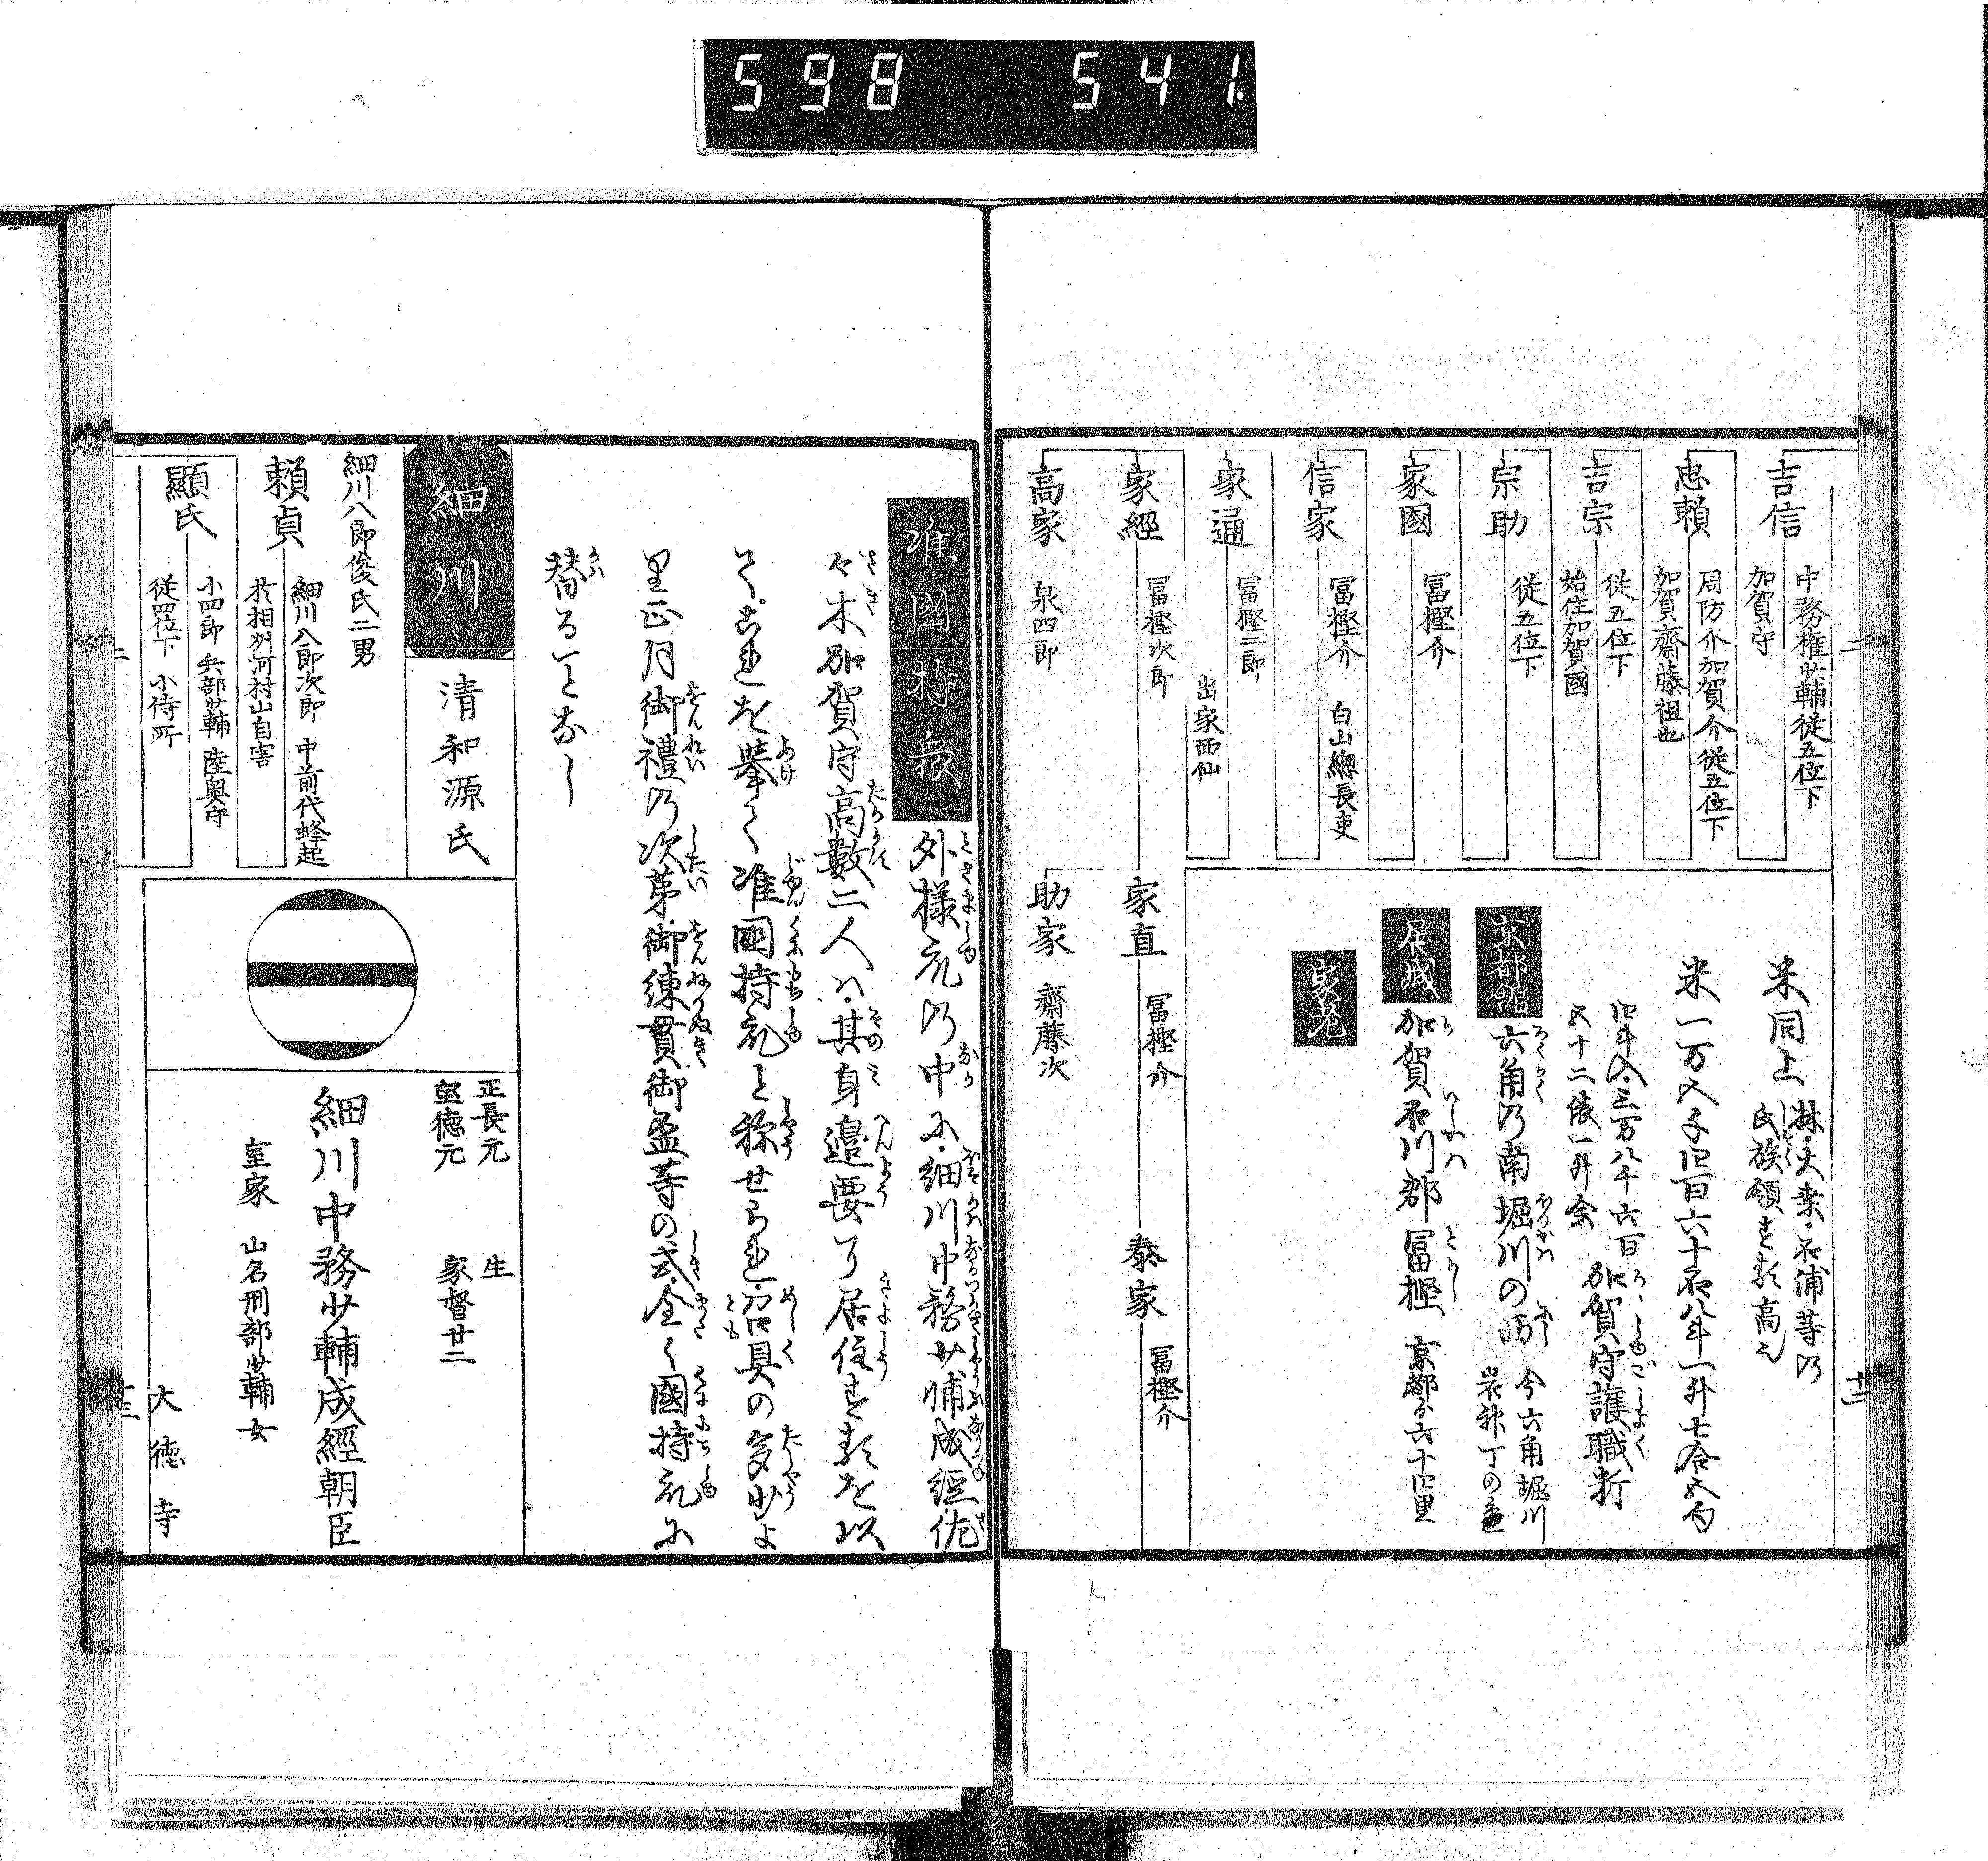 598 541.
吉信
中務権少輔従五位下
加賀守
忠頼
周防介加賀介従五位下
加賀齋藤祖也
吉宗
従五位下
始住加賀國
宗助
従五位下
家國
冨樫介
信家
冨樫介 白山總長吏
家通
冨樫二郎
出家西仙
家經
冨樫次郎
高家
泉四郎
米同上
林・大桒・石浦等乃
氏族領
米一万五千四百六十石八斗一升七合五勺
四斗入三万八千六百
五十二俵一升余
加賀守護職料
京都館
六角乃南堀川の西
今六角堀川
岩神丁の
居城
加賀石川郡冨樫
京都ゟ六十四里
家老
家直
冨樫介
泰家
冨樫介
助家
齋藤次
十二
准國持衆
外様衆乃中に・細川中務少輔成經・佐
々木加賀守高數二人ハ・其身邊要に居住するを以
て・これを擧て准國持衆と称せられ・召具の多少よ
り正月御禮乃次第・御練貫御盃等の式・全く國持衆に
替る事なし
細川
清和源氏
細川八郎俊氏二男
頼貞
細川八郎次郎 中前代蜂起
於相州河村山自害
顯氏
小四郎 兵部少輔 陸奥守
従四位下 小侍所
正長元 生
宝徳元 家督廿二
細川中務少輔成經朝臣
室家 山名刑部少輔女
大徳寺
十三